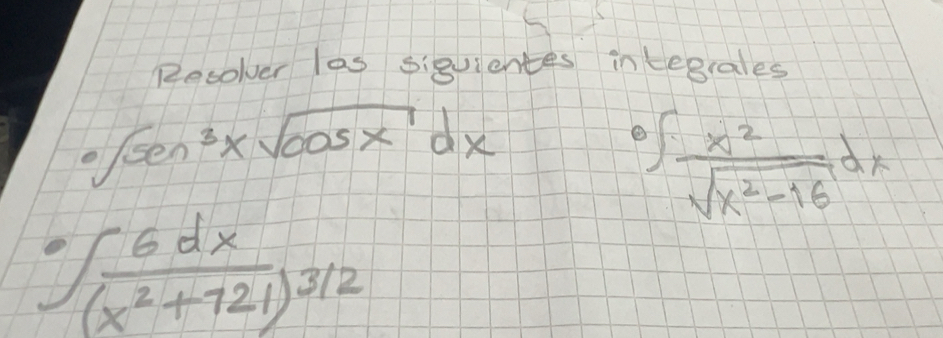 Resolver las siguientes integrales
• ∫sen³x √cosx dx
• ∫ x² / √x²-16 dx
• ∫ 6 dx / (x²+721)^3/2